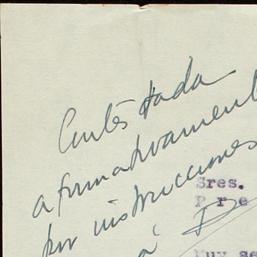 Contestada
afirmativamente
por instrucciones
Sres.
Pre
Muy se